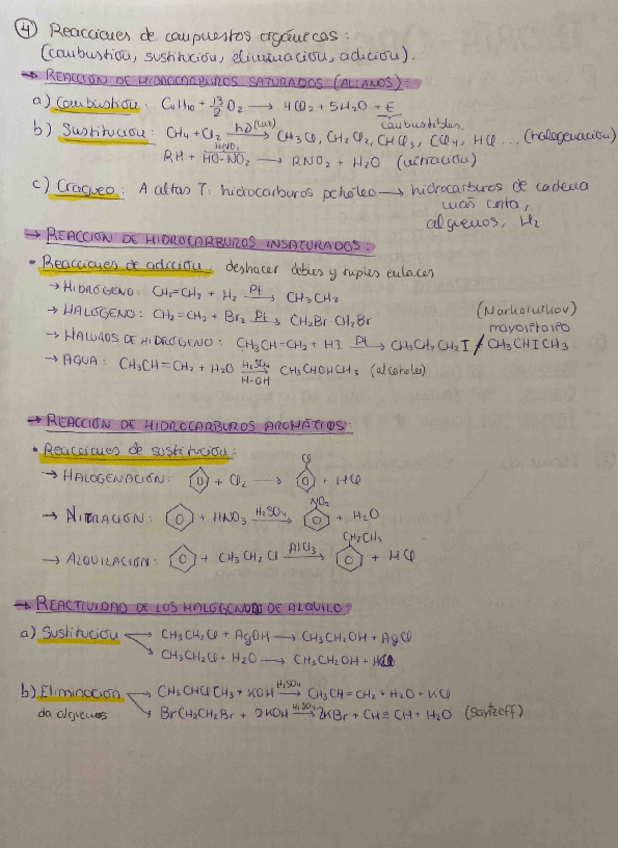 ④ Reacciones de compuestos orgánicos:
(combustión, sustitución, eliminación, adición).
→ REACCIÓN DE HIDROCARBUROS SATURADOS (ALCANOS):
a) Combustión: C4H10 + 13/2 O2 → 4CO2 + 5H2O + E
combustibles.
b) Sustitución: CH4 + Cl2 hν (luz) → CH3Cl, CH2Cl2, CHCl3, CCl4, HCl ... (halogenación)
HNO3
RH + HO-NO2 → RNO2 + H2O (nitración)
c) Craqueo: A altas T: hidrocarburos petróleo → hidrocarburos de cadena
más corta,
alquenos, H2
→ REACCIÓN DE HIDROCARBUROS INSATURADOS:
• Reacciones de adición: deshacer dobles y triples enlaces
→ HIDRÓGENO: CH2=CH2 + H2 Pt → CH3CH3
→ HALÓGENO: CH2=CH2 + Br2 Pt → CH2Br-CH2Br
(Markovnikov)
mayoritario
→ HALUROS DE HIDRÓGENO: CH3CH-CH2 + HI Pt → CH3CH2CH2I / CH3CHICH3
→ AGUA: CH3CH=CH2 + H2O H2SO4 → CH3CHOHCH3 (alcoholes)
H-OH
→ REACCIÓN DE HIDROCARBUROS AROMÁTICOS:
• Reacciones de sustitución:
Cl
→ HALOGENACIÓN: + Cl2 → + HCl
NO2
→ NITRACIÓN: + HNO3 H2SO4 → + H2O
CH2CH3
→ ALQUILACIÓN: + CH3CH2Cl AlCl3 → + HCl
→ REACTIVIDAD DE LOS HALOGENUROS DE ALQUILO:
a) Sustitución → CH3CH2Cl + AgOH → CH3CH2OH + AgCl
→ CH3CH2Cl + H2O → CH3CH2OH + HCl
b) Eliminación → CH3CHClCH3 + KOH H2SO4 → CH3CH=CH2 + H2O + KCl
da alquenos → BrCH2CH2Br + 2KOH H2SO4 → 2KBr + CH≡CH + H2O (Saytzeff)